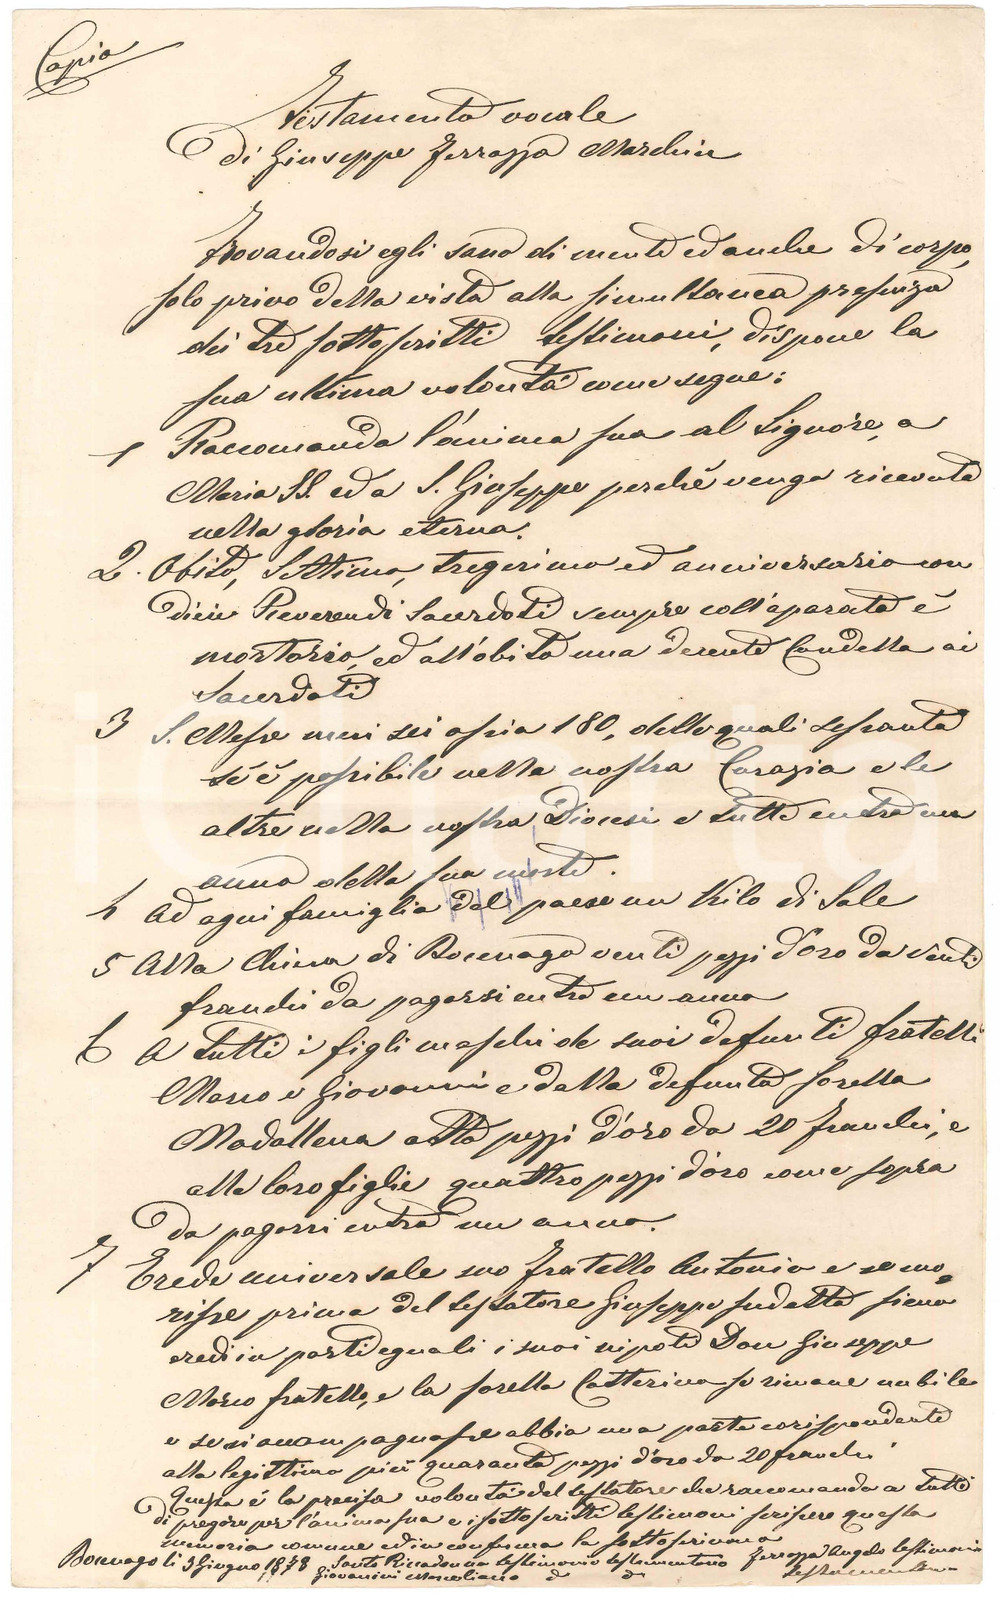 Copia
Testamento vocale
di Giuseppe Ferrazza Marchin
Trovandosi egli sano di mente ed anche di corpo,
solo privo della vista alla simultanea presenza
dei tre sottoscritti testimoni, dispone la
sua ultima volontà come segue:
1 Raccomanda l'anima sua al Signore, a
Maria SS. ed a S. Giuseppe perchè venga ricevuta
nella gloria eterna.
2. Obito, Settimo, tregesimo ed anniversario con
dieci Reverendi Sacerdoti sempre coll'aparato
mortorio, ed all'obito una decente Candella ai
Sacerdoti
3 S. Messe meri sei ossia 180, delle quali sessanta
se è possibile nella nostra Curazia e le
altre nella nostra Diocesi e tutte entro un
anno della sua morte.
4 Ad ogni famiglia del paese un Kilo di Sale
5 Alla Chiesa di Bocenago venti pezzi d'oro da venti
franchi da pagarsi entro un anno
6 A tutti i figli maschi de suoi defunti fratelli
Marco e Giovanni e dalla defunta sorella
Madallena otto pezzi d'oro da 20 franchi, e
alle loro figlie quattro pezzi d'oro come sopra
da pagarsi entro un anno.
7 Erede universale suo fratello Antonio e se mo-
risse prima del testatore Giuseppe suddetto sieno
eredi in parti eguali i suoi nipoti Don Giuseppe
Marco fratello, e la sorella Catterina se rimane nubile
e se si accompagnasse abbia una parte corrispondente
alla legittima più quaranta pezzi d'oro da 20 franchi
Questa è la precisa volontà del testatore che raccomanda a tutti
di pregare per l'anima sua e i sottoscritti testimoni scrissero questa
memoria comune ed in conferma la sottoscrivono
Bocenago li 3 Giugno 1878 Santo Riccadonna testimonio testamentario Ferrazza Angelo testimonio
Giovanini Massimiliano do do testamentario